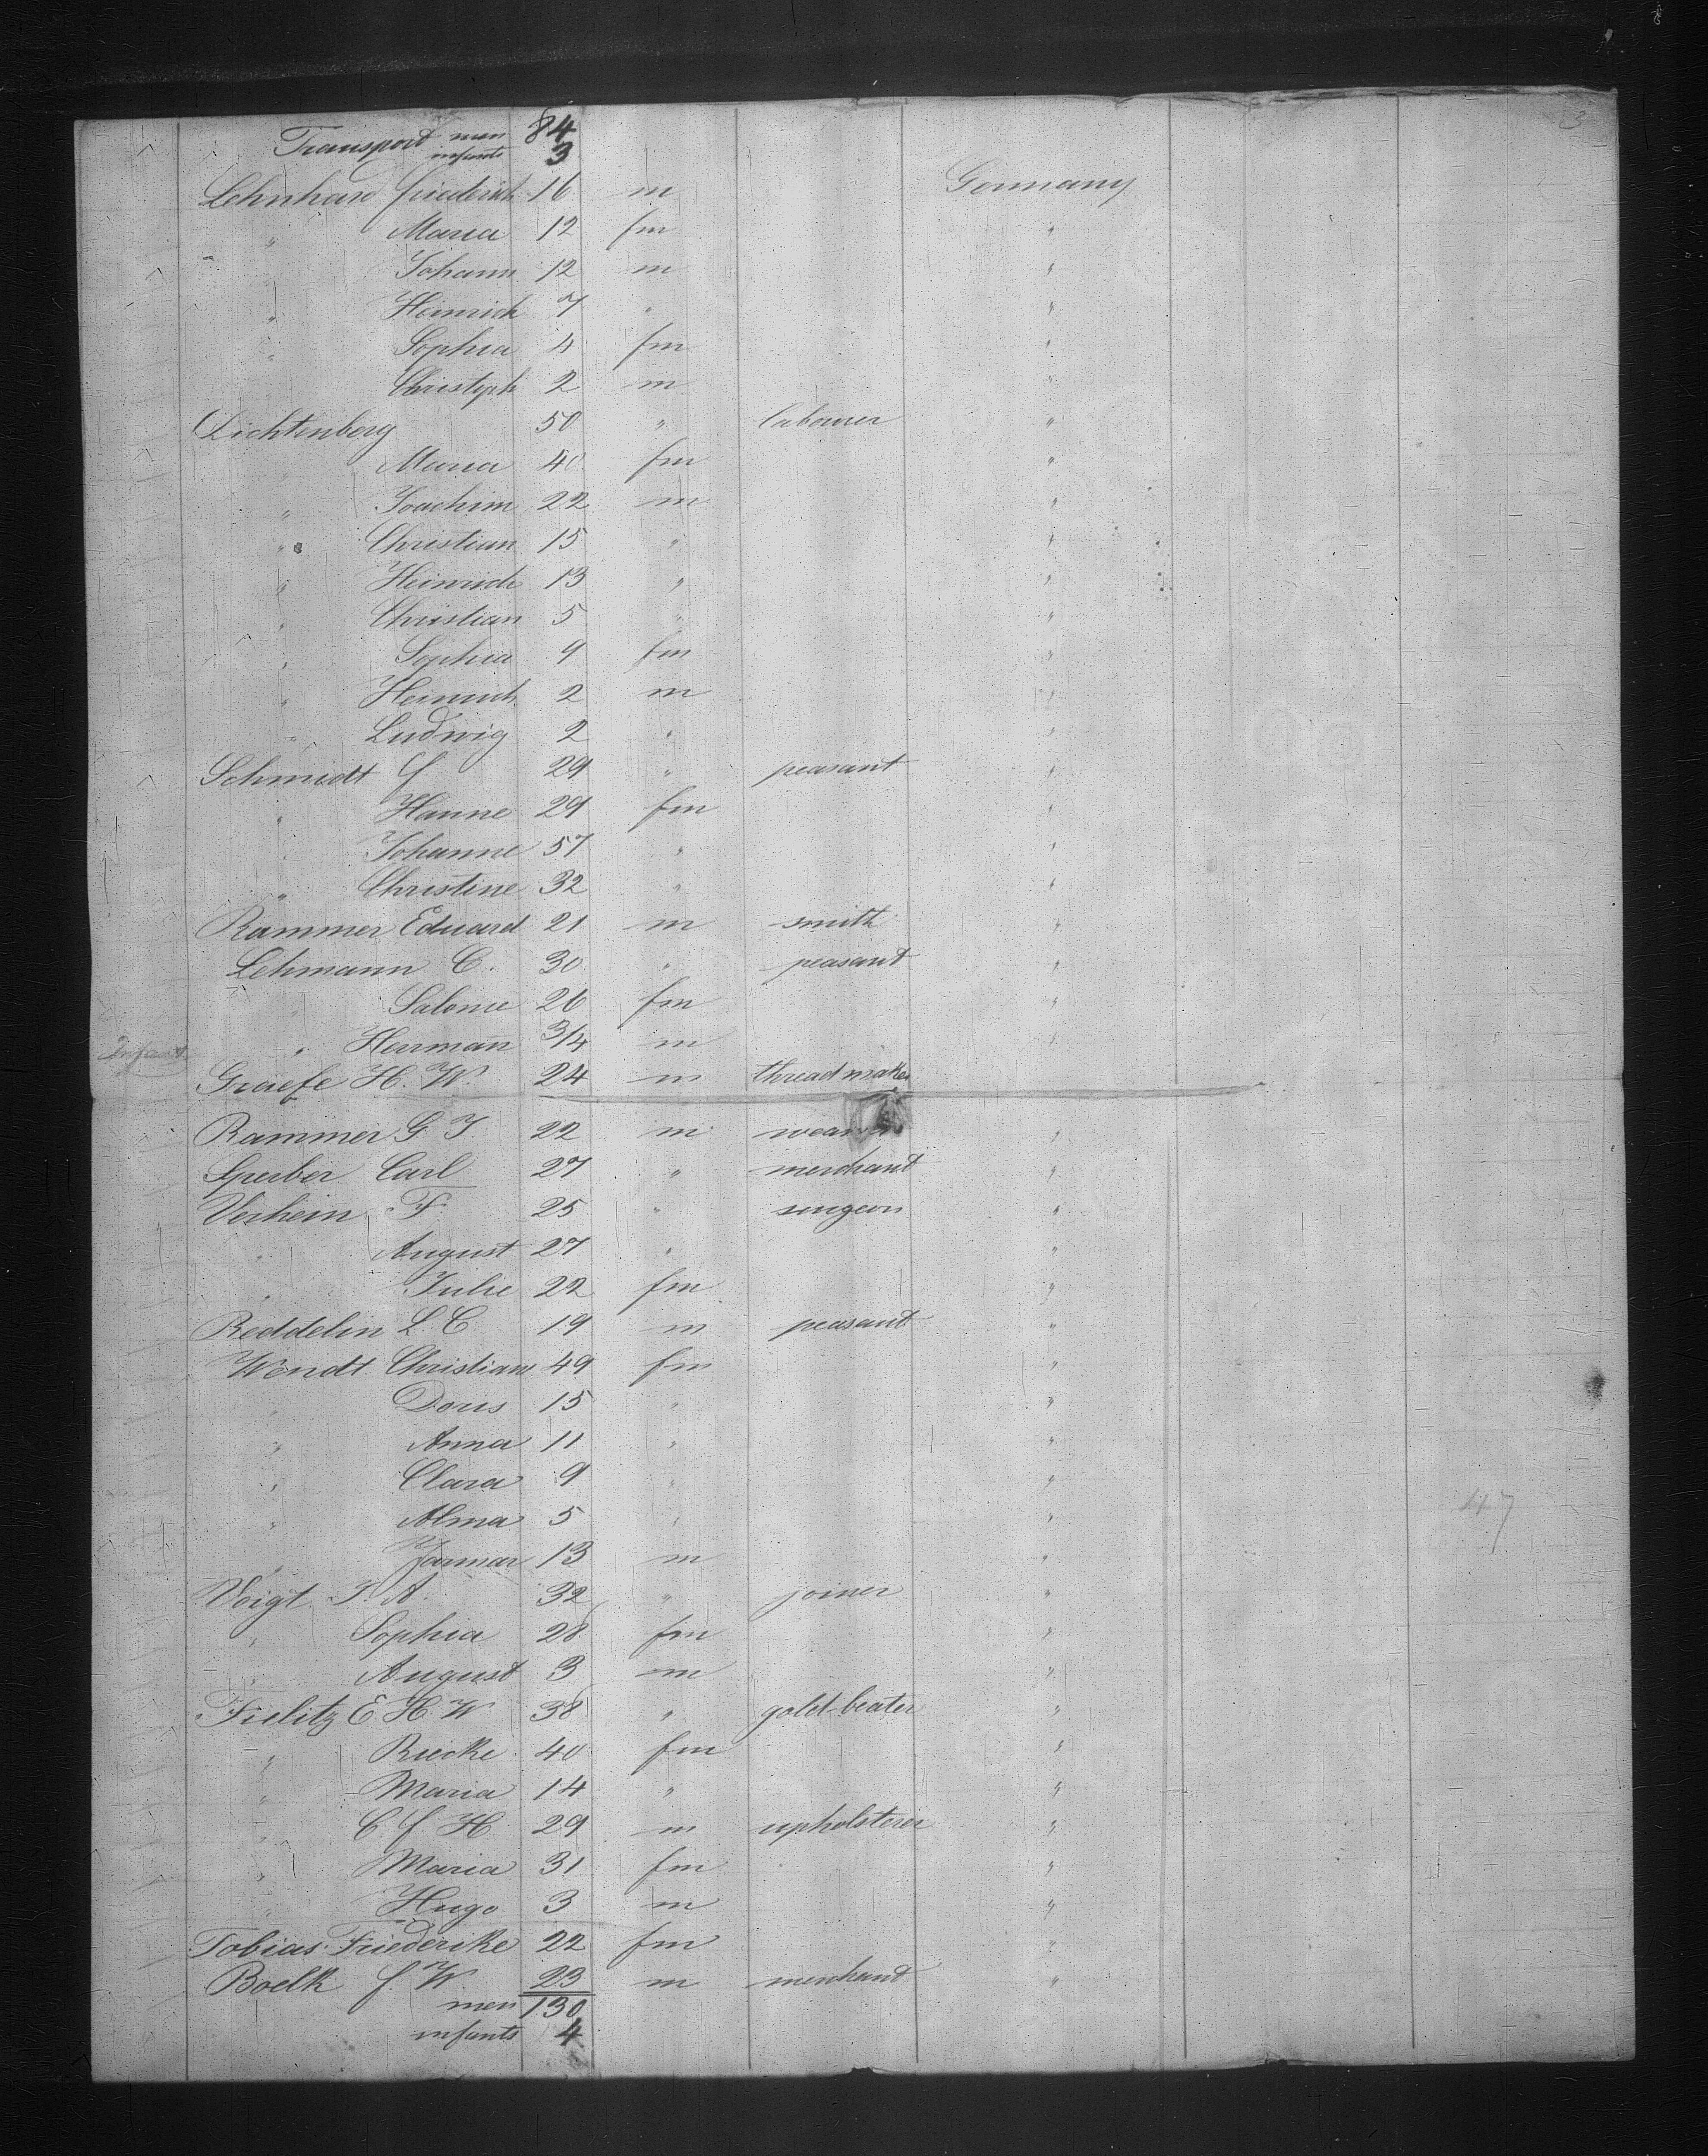 3
Transport men 84
infants 3
Lehnhard Friederich 16 m Germany
" Maria 12 fm "
" Johann 12 m "
" Heinrich 7 " "
" Sophia 4 fm "
Christoph 2 m "
Lichtenberg 50 " labourer "
" Maria 40 fm "
" Joachim 22 m "
" Christian 15 " "
" Heinrich 13 " "
" Christian 5 " "
" Sophia 9 fm "
" Heinrich 2 m "
" Ludwig 2 " "
Schmidt f 29 " peasant "
" Hanne 29 fm "
" Johanne 57 " "
" Christine 32 " "
Rammer Eduard 21 m smith "
Lehmann C. 30 " peasant "
" Salome 26 fm "
Infant " Herrman 3/4 m "
Graefe H. W. 24 m thread maker
Rammer G J. 22 m "
Sperber Carl 27 " merchant "
Verhein F. 25 " surgeon "
" August 27 " "
" Julie 22 fm "
Reddelin L. C 19 m peasant "
Wendt Christiane 49 fm "
" Doris 15 " "
" Anna 11 " "
" Clara 9 " "
" Alma 5 " "
" 13 m "
Voigt J. A. 32 " joiner "
" Sophia 28 fm "
" August 3 m "
Fielitz E. H. W 38 " gold-beater "
" Riecke 40 fm "
" Maria 14 " "
" C f H 29 m upholsterer "
" Maria 31 fm "
" Hugo 3 m "
Tobias Friederike 22 fm "
Boelk f. W 23 m merchant "
men 130
infants 4
47